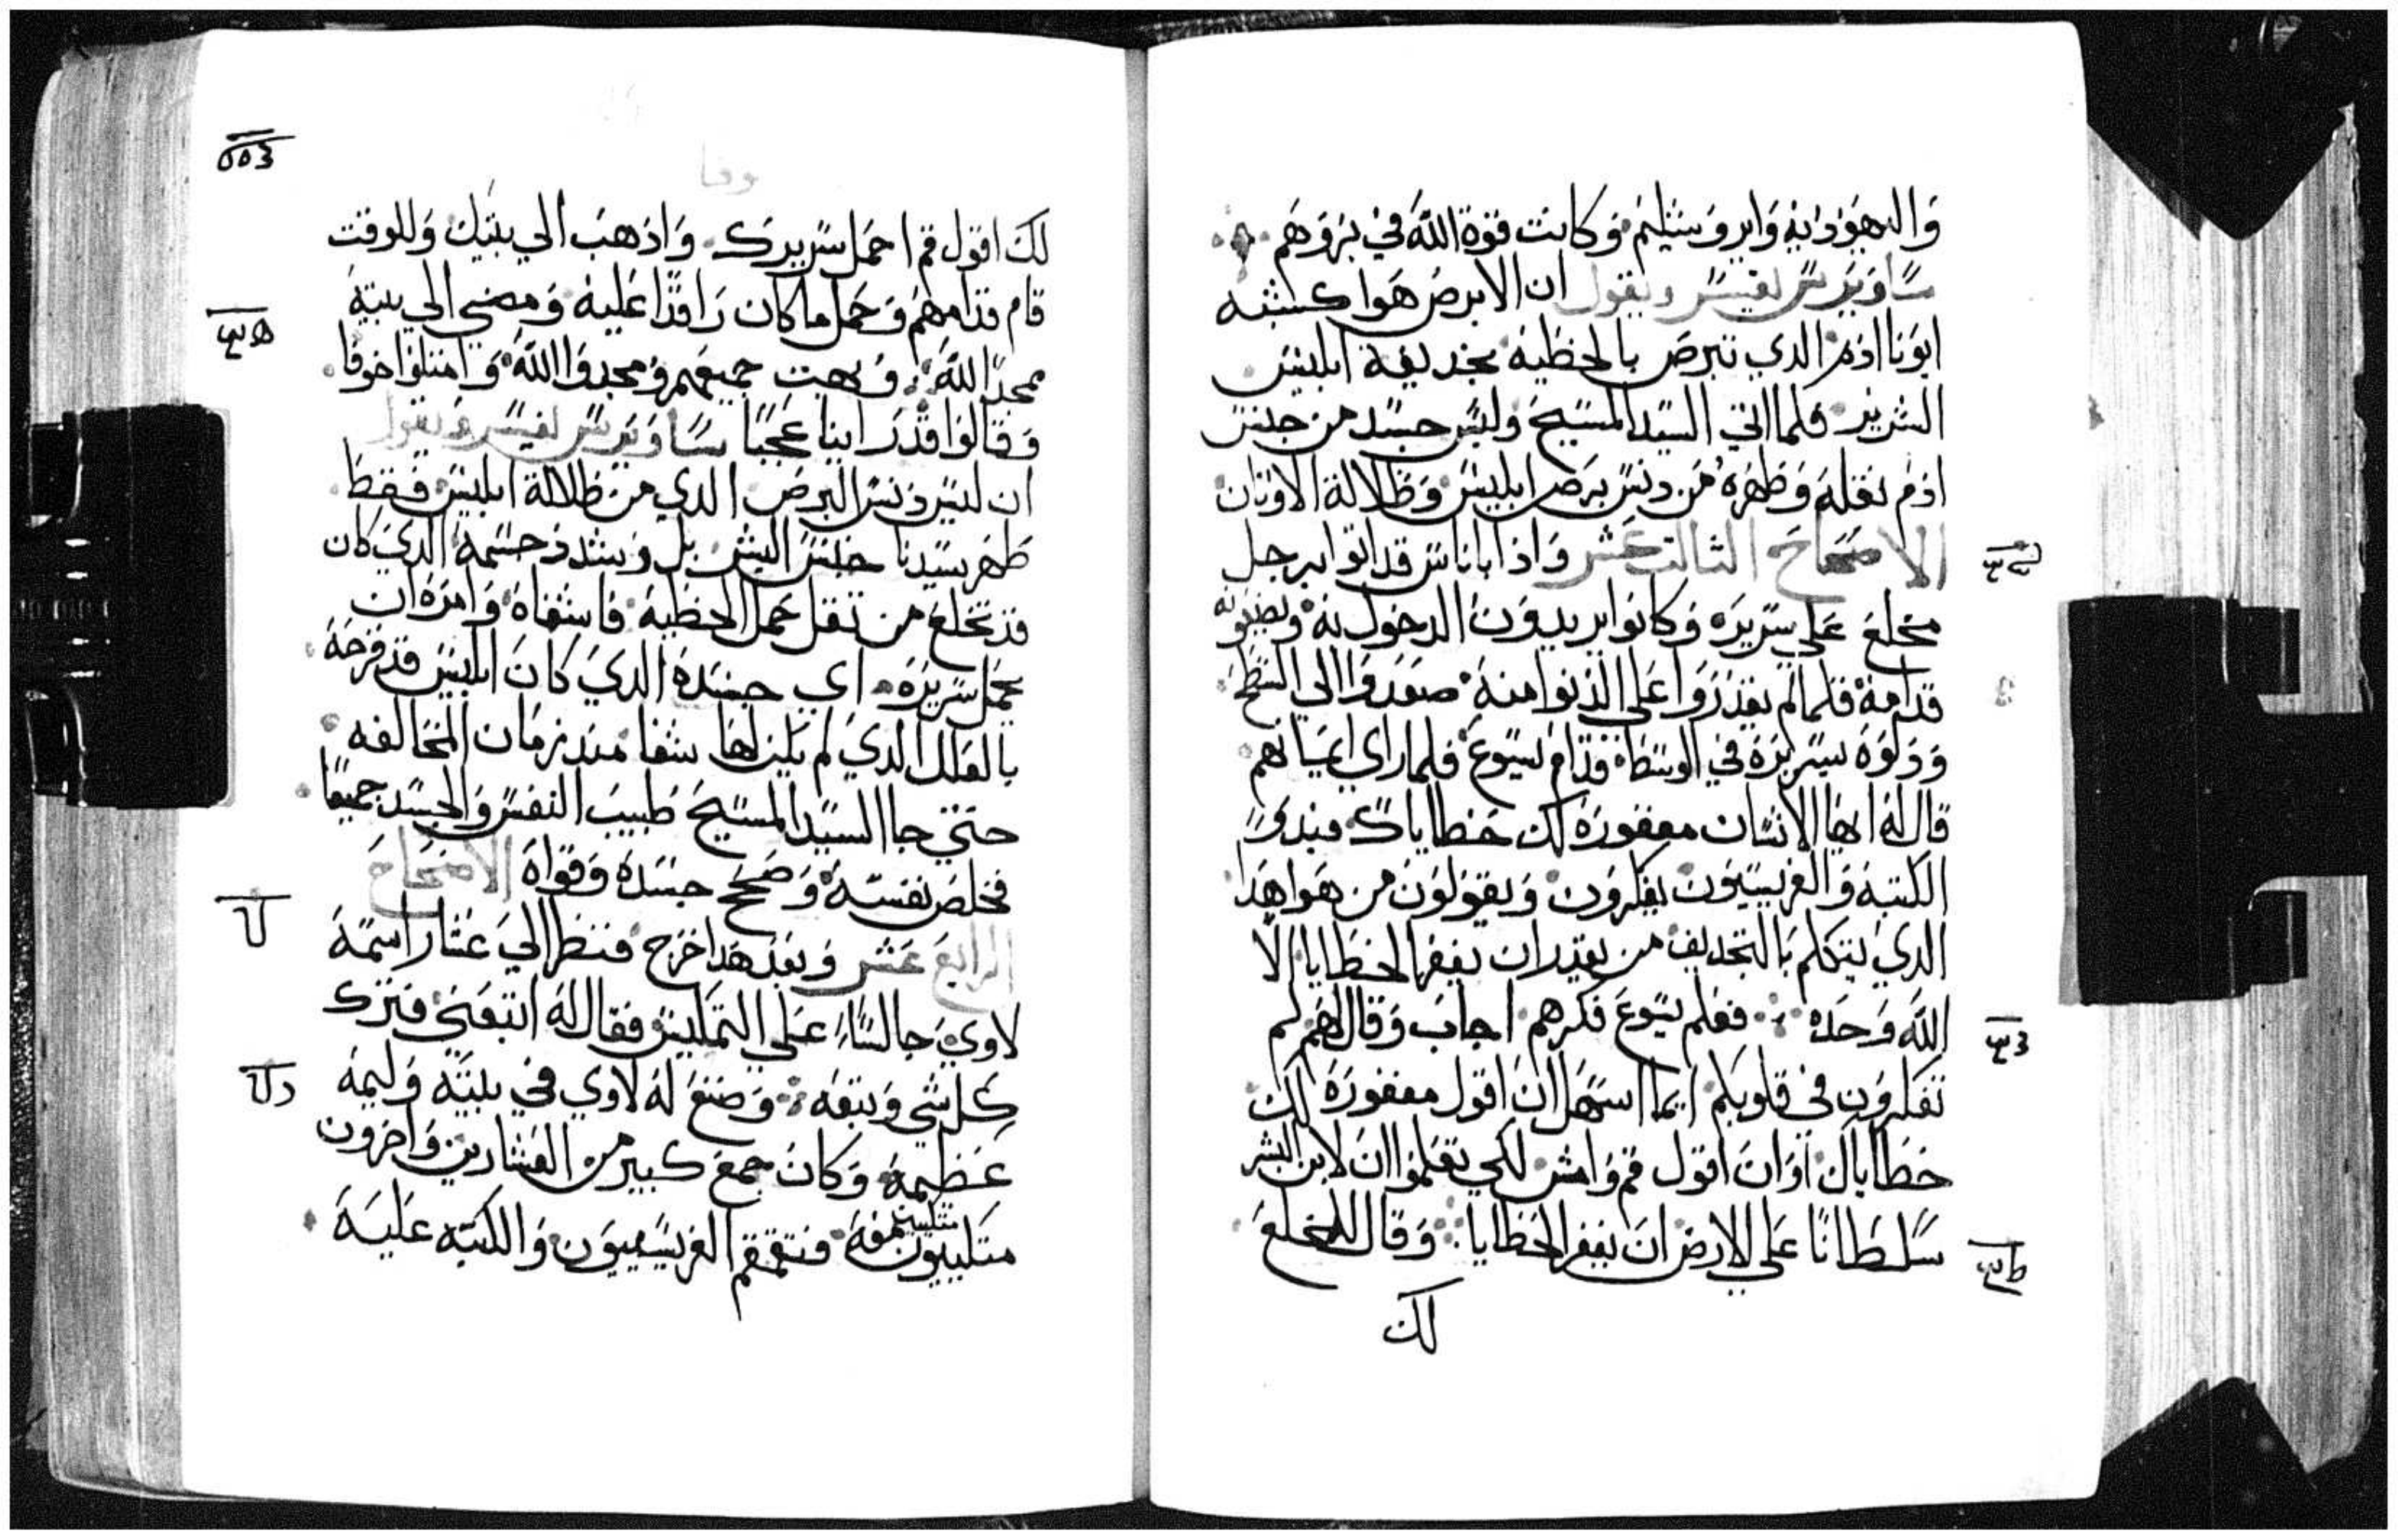 واليهوديه وايروشليم وكانت قوة الله في بروهم
ساويرس يفسر ويقول ان الابرص هوا كشبه
ابونا ادم الدي تبرص بالخطيه بخديعة ابليس
الشرير فلما اتي السيد المسيح ولبس جسد من جنس
ادم نقله وطهره من دنس برص ابليس وظلالة الاوتان
الاصحاح الثالث عشر واذا باناس قد اتوا برجل
مخلع علي سريره وكانوا يريدون الدخول به ويضعونه
قدامه فلما لم يقدروا علي الدنوا منه صعدوا الي السطح
ودلوه بسريره في الوسط قدام يسوع فلما راي ايمانهم
قال له ايها الانسان مغفوره لك خطاياك فبدي
الكتبه والفريسيون يفكرون ويقولون من هوا هدا
الدي يتكلم بالتجديف من يقدر ان يغفر الخطايا الا
الله وحده فعلم يسوع فكرهم اجاب وقال لهم لم
تفكرون في قلوبكم ايما اسهل ان اقول مغفوره لك
خطاياك او ان اقول قم وامش لكي تعلموا ان لابن البشر
سلطانا علي الارض ان يغفر الخطايا وقال للمخلع
لك
لك اقول قم احمل سريرك واذهب الي بيتك وللوقت
قام قدامهم وحمل ما كان راقدا عليه ومضي الي بيته
ممجدا لله وبهت جميعهم ومجدوا الله وامتلوا خوفا
وقالوا قد راينا عجبا ساويرس يفسر ويقول
ان ليس دنس البرص الدي من ظلالة ابليس فقط
طهر سيدنا جنس البشر بل وشدد جسمه الدي كان
قد تخلع من تقل عمل الخطيه فاشفاه وامره ان
يحمل سريره اي جسده الدي كان ابليس قد قرحه
بالعلل الدي لم يكن لها شفا مند زمان المخالفه
حتي جا السيد المسيح طبيب النفس والجسد جميعا
فخلص نفسه وصحح جسده وقواه الاصحاح
الرابع عشر وبعد هدا خرج فنظر الي عشار اسمه
لاوي جالسا علي التمكيس فقال له اتبعني فترك
كل شي وتبعه وصنع له لاوي في بيته وليمه
عظيمه وكان جمع كبير من العشارين واخرون
متكييون معه فتقمقم الفريسييون والكتبه عليه